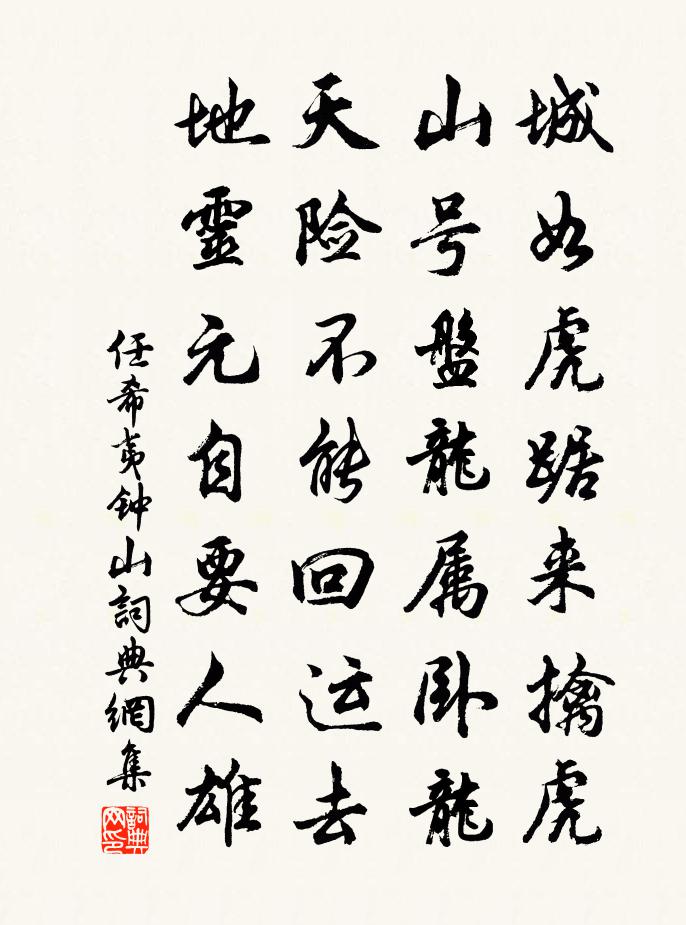 城如虎踞来擒虎
山号盤龍属卧龍
天险不能回运去
地靈元自要人雄
任希夷钟山詞典網集
詞典网印